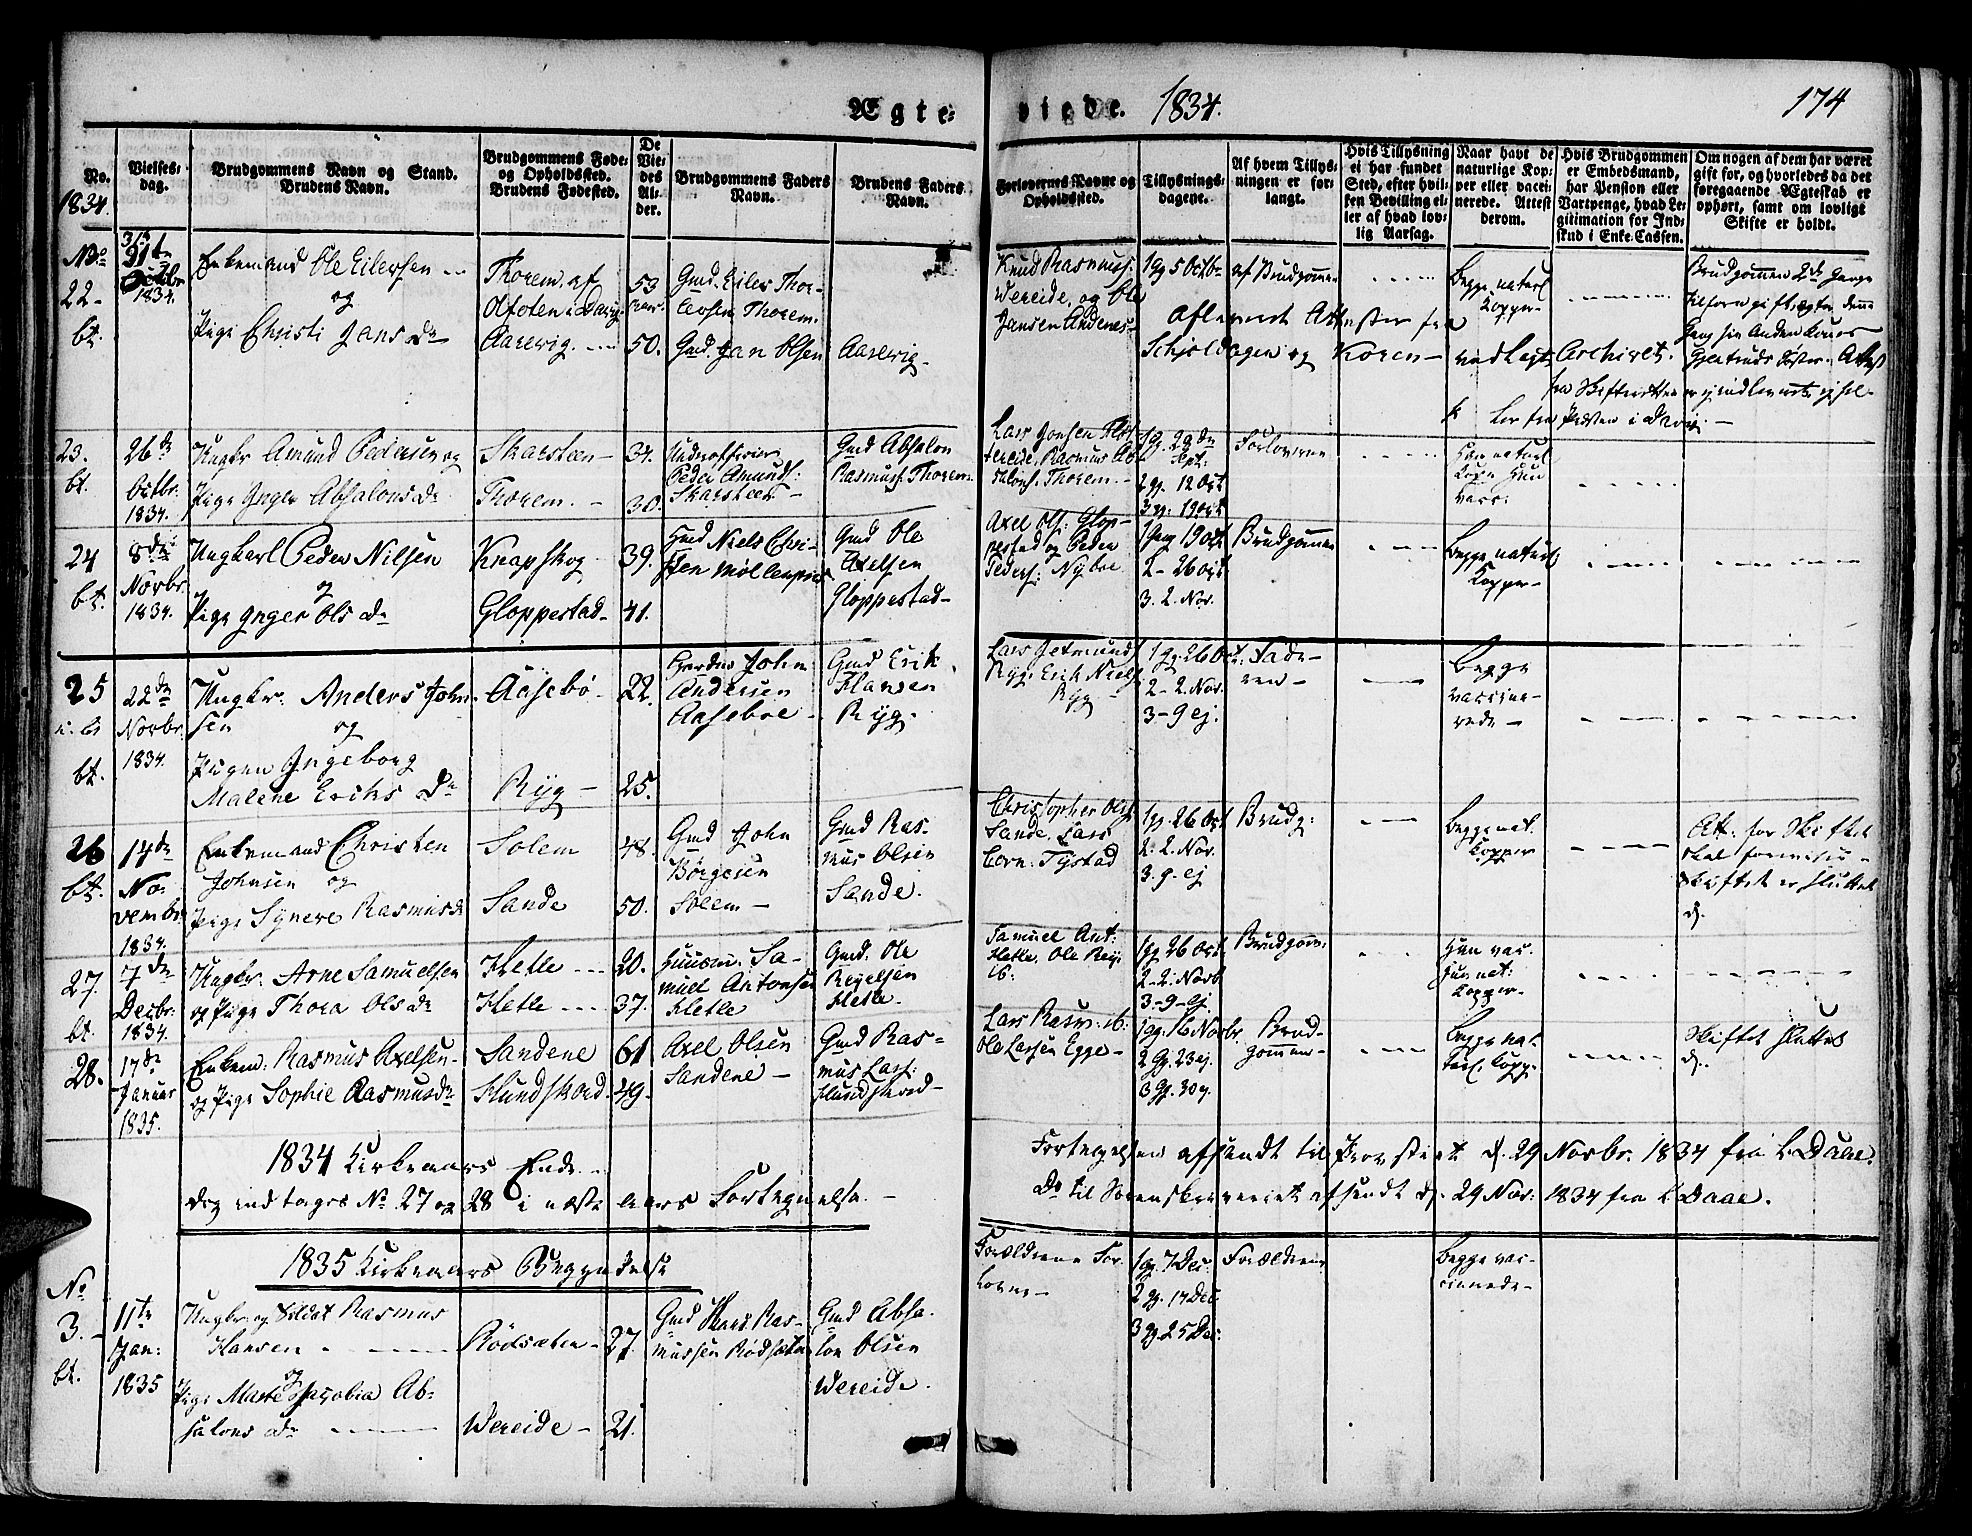 Ægte- viede. 1834. 174
No. 1834.
Vielses-
dag.
Brudgommens Navn og Stand.
Brudens Navn.
Brudgommens Føde-
og Opholdssted.
Brudens Fødested.
De
Vie-
des
Al-
der.
Brudgommens Faders
Navn.
Brudens Faders
Navn.
Forlovernes Navne og
Opholdssted.
Tillysnings-
dagene.
Af hvem Tillys-
ningen er for-
langt.
Hvis Tillysning
ei har fundet
Sted, efter hvil-
ken Bevilling el-
ler af hvad lov-
lig Aarsag.
Naar havt de
naturlige Kop-
per eller vacci-
nerede. Attest
derom.
Hvis Brudgommen
er Embedsmand,
har Pension eller
Vartpenge, hvad Le-
gitimation for Ind-
skud i Enke-Cassen.
Om nogen af dem har været
gift før, og hvorledes da det
foregaaende Ægteskab er
ophørt, samt om lovligt
Skifte er holdt.
No
22-
bt.
31te
Octbr
1834.
Enkemand Ole Eilersen
og
Pige Christi Jans Dr
Thorem af
Aarevig.
53
50.
Gmd. Eiler Thor-
Thorem.
Gmd. Jan Olsen
Aarevig
Knud Rasmuss.
Wereide, og Ole
Jansen Andenes-
1g 5 Octb
af Brudgommen
afleveret Attester fra
Schjoldagen og Koren- vedlagt Archivet.
Begge naturl
Kopper-
Brudgommen 2de Gange
23.
bt.
26de
Octbr.
1834.
Ungkr Amund Pedersen og
Pige Inger Absalons Dr
Skarsteen-
Thorem.-
34.
30.
Underofficer
Peder Amunds.
Skarsteen-
Gmd Absalon
Rasmuss. Thorem
Lars Jonsen
Rasmus Ab-
salons. Thorem.-
1g. 29de
Sept:
2g. 12 Oct
3g. 19 Oct
Forloverne
Han naturl
Kopp: Hun
vacc:
24
bt.
8de
Novbr.
1834.
Ungkarl Peder Nilsen
og
Pige Inger Ols Dr
Knapskog
Gloppestad-
39.
41.
Niels Chri-
sten
Gmd Ole
Axelsen
Gloppestad-
Axel Ols: Glop-
pestad og Peder
Peders: Nyboe
1gang 19 Oct
2- 26 Oct
3. 2. Nov.
Brudgommen
Begge naturl
Kopper-
25
bt.
22de
Novbr.
1834.
Ungkr. Anders John-
sen og
Pigen Ingeborg
Malene Erichs Dr
Aasebö-
Ryg-
22.
25.
John
Andersen
Aaseboe-
Gmd Erik
Hansen
Ryg.
Lars Getmunds
Ryg. Erik Niels
Ryg
1g. 26 Oct:
2- 2. Nov.
3- 9 ej.
Fade-
ren-
Begge
vaccine-
rede-
26
bt.
14de
No-
vembr
1834.
Enkemand Christen
Johnsen og
Pige Synere Rasmusdr
Solem
Sande
48.
50.
Gmd John
Börgesen
Solem-
Gmd Ras-
mus Olsen
Sande.
Christopher Ols
Sande. Lars
Corn: Tystad
1g. 26 Oct
2. 2. Nov.
3. 9. ej
Brudg:
Begge nat.
Kopper
Att: for Skiftet
skal
skiftet er sluttet
27.
bt.
7de
Decbr.
1834.
Ungkr. Arne Samuelsen
og Pige Thora Ols dr
Hetle
Hetle
20.
37.
Huusm. Sa-
muel Antonsen
Hetle
Gmd. Ole
Hetle.
Samuel Ant:
Hetle. Ole
ib:
1g 26 Oct
2- 2. Novb
3- 9- ej
Brudgom:
Hun vac.
nat:
Kopper-
28.
17de
Januar
1835.
Enkem: Rasmus Axelsen-
og Pige Sophie Rasmusdr
Sandene
Hundskord
61
49.
Axel Olsen
Sandene-
Gmd Ras-
mus Lars:
Hundskord-
Lars Rasm. ib:
Ole Larsen Egge-
1g. 16 Novbr.
2g. 23 ej.
3g. 30 ej.
Brud-
gommen-
Begge nat-
url. Kopp.
Skiftet sluttet
1834 Kirkeaars Ende-
dog indtages No 27 og 28 i næste aars Fortegnelse.-
Fortegnelsen afsendt til Provstiet d. 29 Novbr. 1834 fra L. Daae.
Do til Sorenskriveriet afsendt d. 29 Nov: 1834 fra L. Daae.
1835 Kirkeaars Begyndelse
No
3.-
bt.
11te
Jan:
1835
Ungkr. og Soldat Rasmus
Hansen
og
Pige Marte Jacobia Ab-
salons dr
Rödsæten-
Wereide-
27.
21.
Gmd Hans Ras-
mussen Rödsæten
Gmd Absa-
lon Olsen
Wereide.
Forældrene For-
lovere-
1g. 7 Dec:
2g. 14 Dec
3g. 25 Dec:
Forældrene
Begge vac-
cinerede-